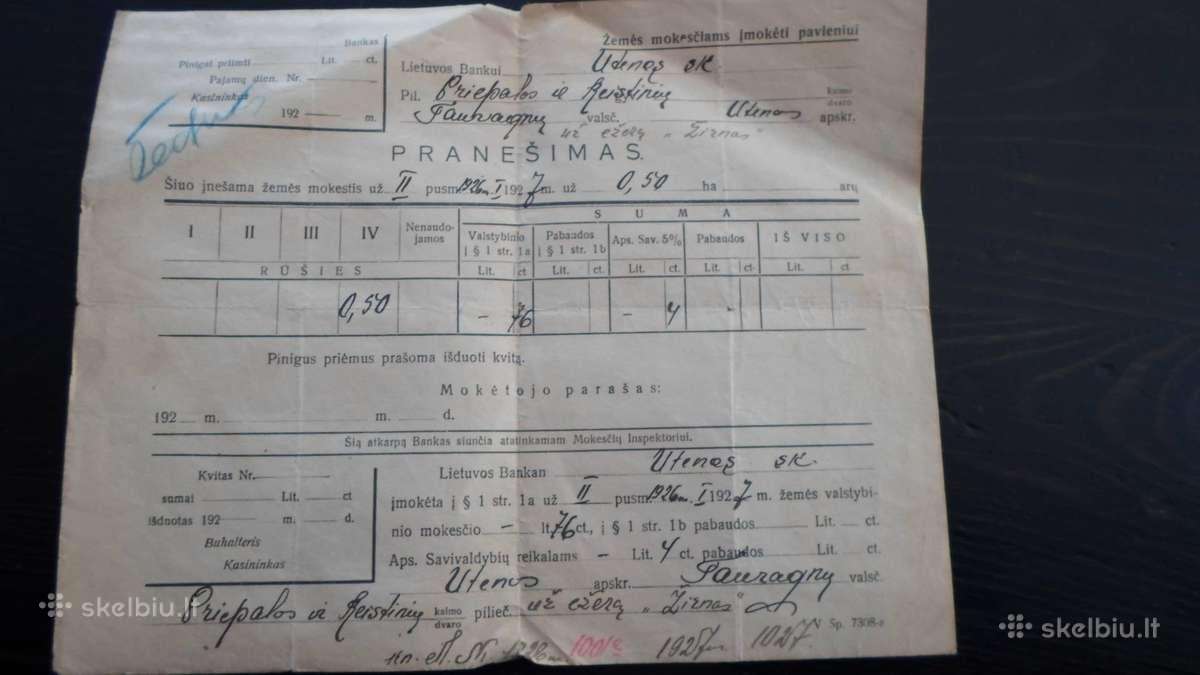 Bankas
Pinigai priimti Lit. ct.
Pajamų dien. Nr.
Kasininkas
192 m.
Žemės mokesčiams įmokėti pavieniui
Lietuvos Bankui Utenos sk.
Pil. Priepalos ir Reistinių kaimo dvaro
Tauragnų valsč. Utenos apskr.
už ežerą „Žirnas"
PRANEŠIMAS.
Šiuo įnešama žemės mokestis už II pusm. 1926 m. I 1927 m. už 0,50 ha arų
I II III IV Nenaudojamos SUMA
Valstybinio į § 1 str. 1a Pabaudos į § 1 str. 1b Aps. Sav. 5% Pabaudos IŠ VISO
RŪŠIES Lit. ct Lit. ct. Lit. ct. Lit. ct. Lit. ct
0,50 – 76 – 4 -
Pinigus priėmus prašoma išduoti kvitą.
Mokėtojo parašas:
192 m. m. d.
Šią atkarpą Bankas siunčia atatinkamam Mokesčių Inspektoriui.
Kvitas Nr.
sumai Lit. ct
išduotas 192 m. d.
Buhalteris
Kasininkas
Lietuvos Bankan Utenos sk.
įmokėta į § 1 str. 1a už II pusm. 1926 m. I 1927 m. žemės valstybi-
nio mokesčio – lt. 76 ct., į § 1 str. 1b pabaudos Lit. ct.
Aps. Savivaldybių reikalams – Lit. 4 ct. pabaudos Lit. ct.
Utenos apskr. Tauragnų valsč.
Priepalos ir Reistinių kaimo dvaro pilieč. už ežerą „Žirnas"
V Sp. 7308-a
1927 m 1027
skelbiu.lt
skelbiu.lt